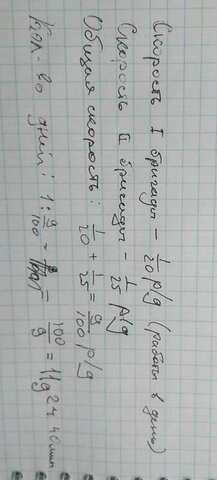 Скорость I бригады – 1/20 р/д (работы в день)
Скорость II бригады – 1/25 р/д
Общая скорость: 1/20 + 1/25 = 9/100 р/д
Кол-во дней: 1 : 9/100 = 100/9 = 11д 2ч 40мин